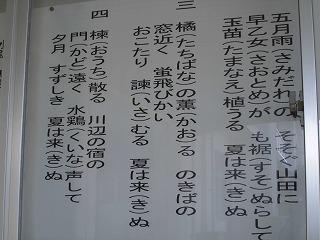 五月雨(さみだれ)の そそぐ山田に
早乙女(さおとめ)が も裾(すそ)ぬらして
玉苗(たまなえ)植うる 夏は来(き)ぬ
三 橘(たちばな)の薫(かお)る のきばの
窓近く 蛍飛びかい
おこたり 諫(いさ)むる 夏は来(き)ぬ
四 楝(おうち)散る 川辺の宿の
門(かど)遠く 水鶏(くいな)声して
夕月 すずしき 夏は来(き)ぬ